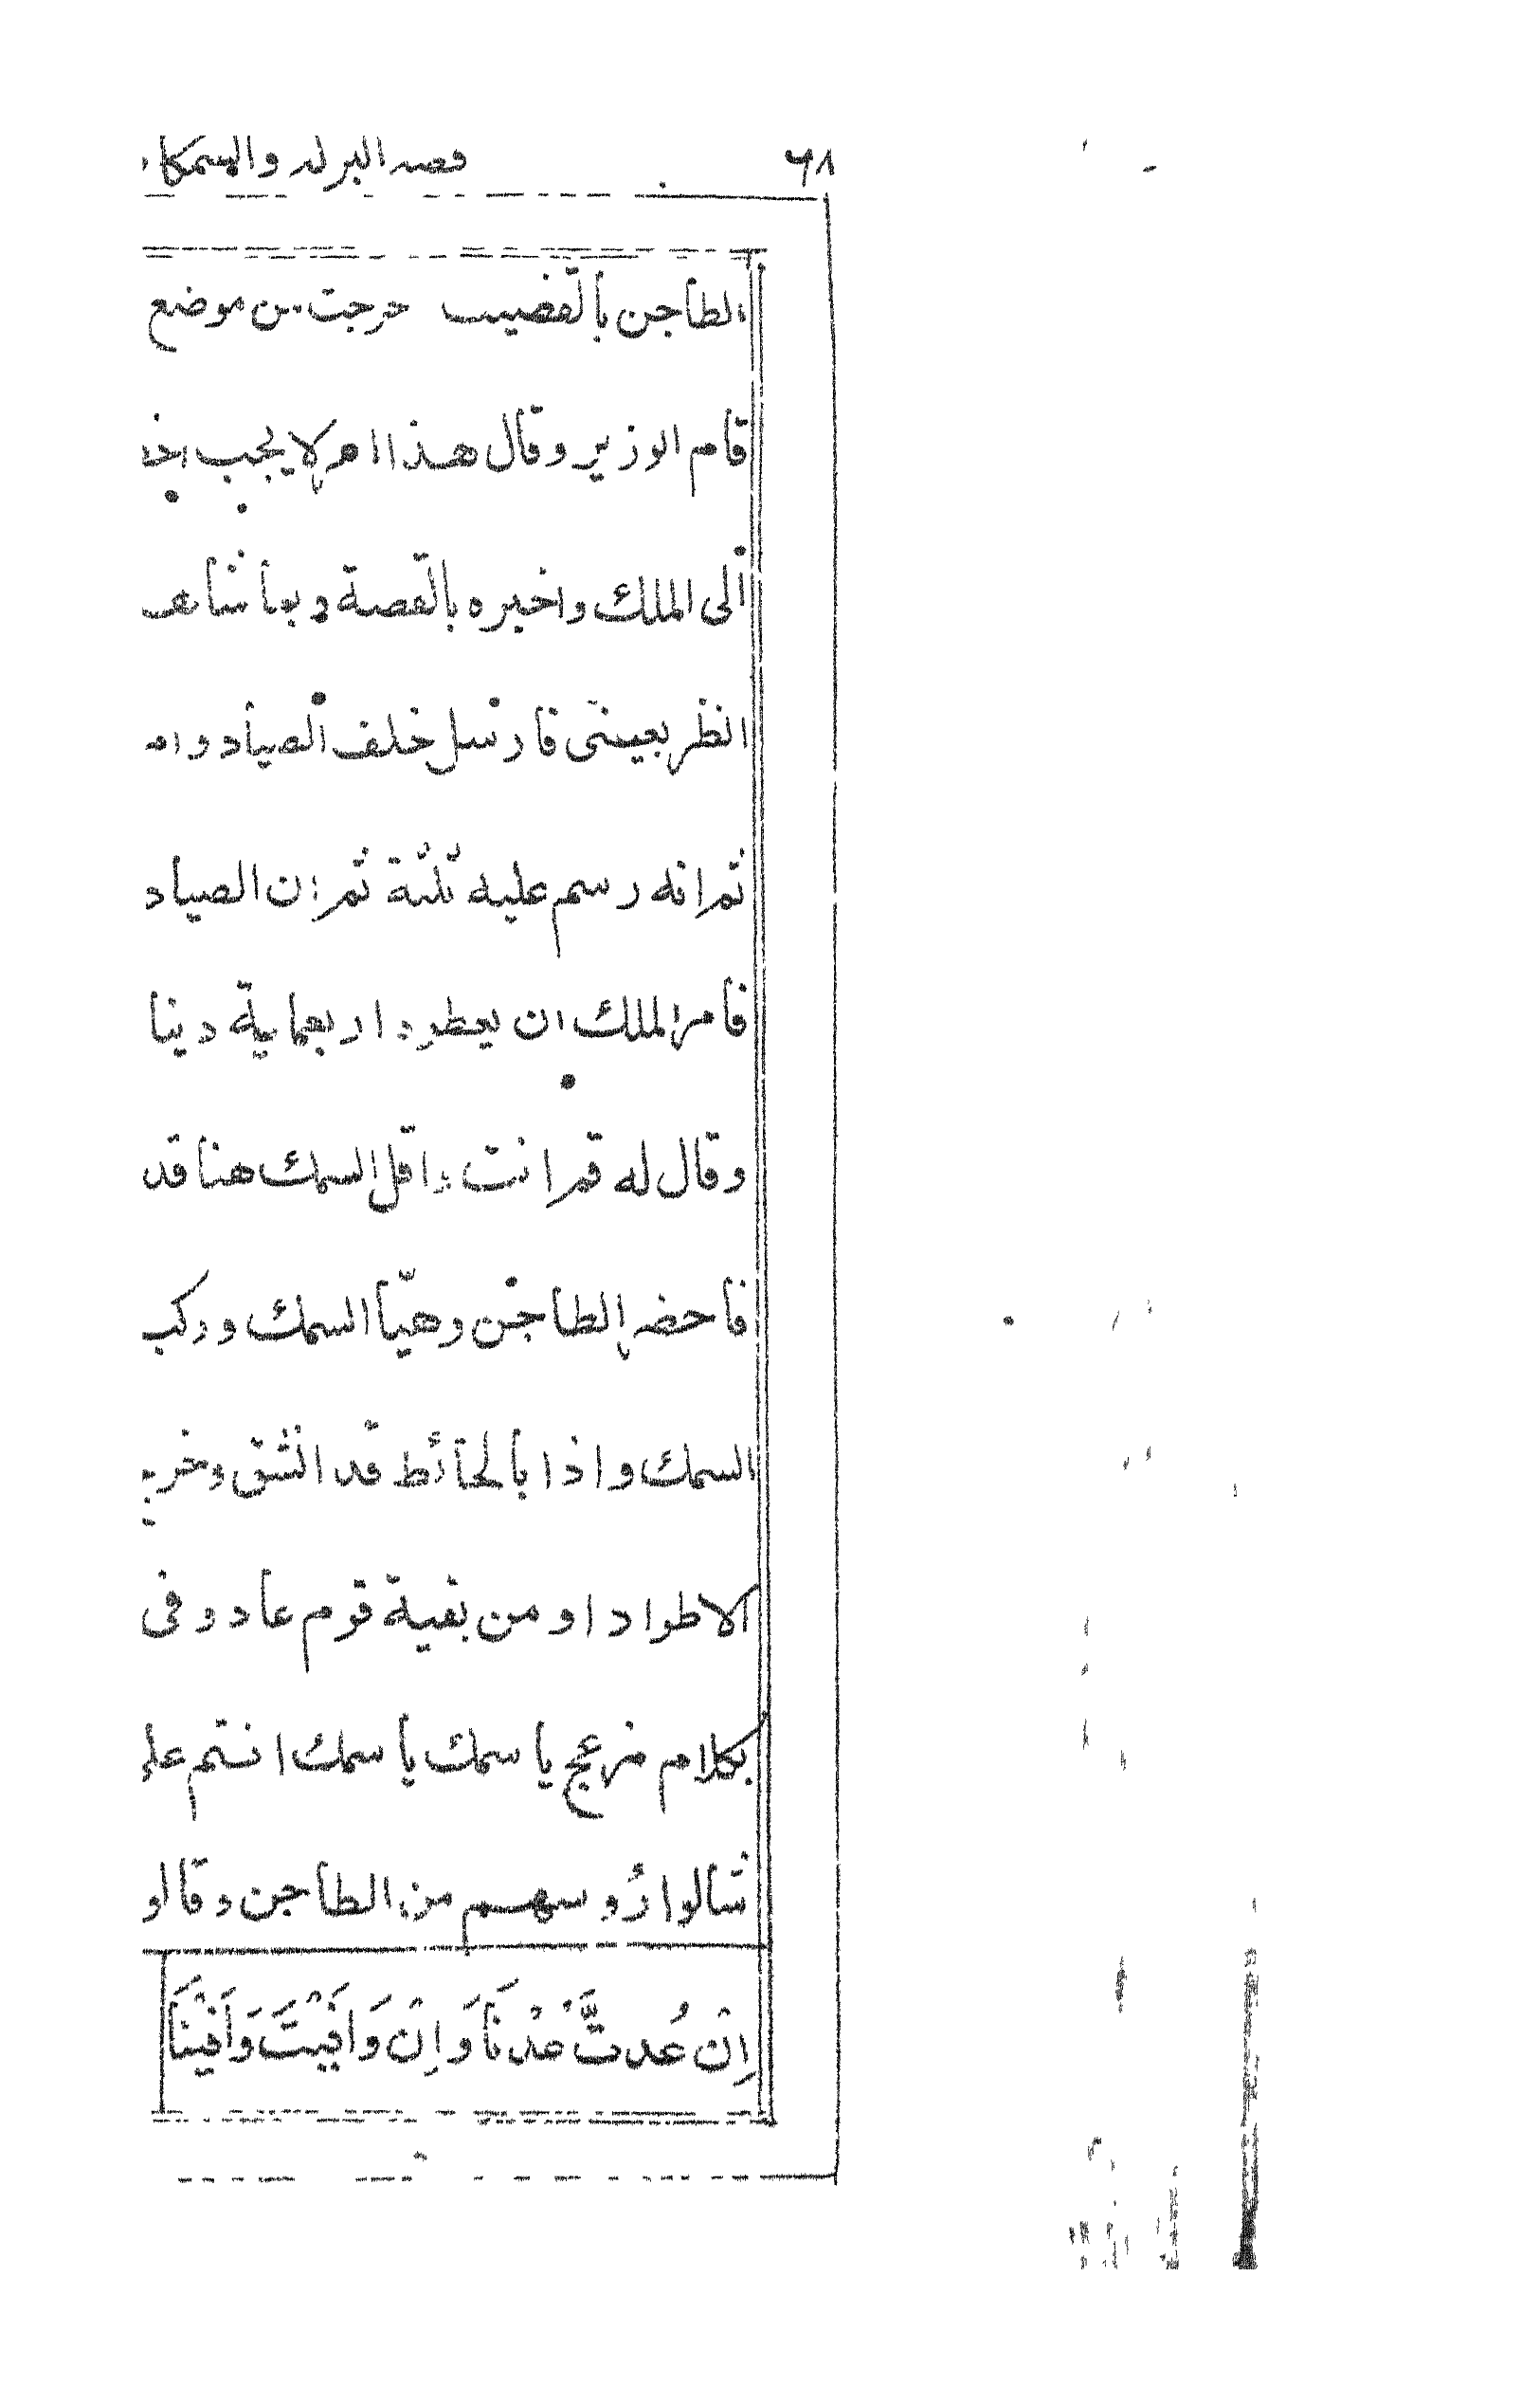 ٦٨ قصه البركه والسمكا
الطاجن بالقضيب خرجت من موضع
قام الوزير وقال هذا امر لا يجب اخفا
الى الملك واخبره بالقصة وبما شاهد
انظر بعينى فارسل خلف الصياد وامر
ثم انه رسم عليه ثلثة ثم ان الصياد
فامر الملك ان يعطوه اربعماية دينا
وقال له قم انت واقل السمك هنا قد
فاحضر الطاجن وهيأ السمك وركب
السمك واذا بالحائط قد انشق وخرج
الاطواد او من بقية قوم عاد وفى
بكلام مزعج يا سمك يا سمك انتم على
شالوا رؤسهم من الطاجن وقالو
اِنْ عُدتَّ عُدْنَا وَاِنْ وَافَيْتَ وَافَيْنَا